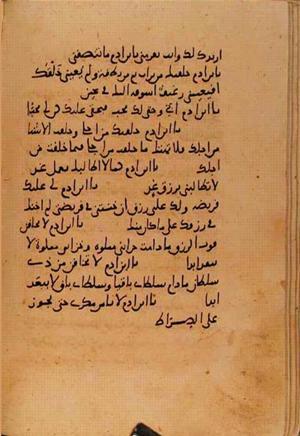 اريدك لك وانت تفر مني يابن ادم ما تنصفني
يابن ادم خلقتك من تراب ثم من نطفة ولم يعييني خلقك
افيعييني رغيف اسوقه اليك في حين
يا ابن ادم اني وحقي لك محب فبحقي عليك كن لي محبا
يا ابن ادم خلقتك من اجلي وخلقت الاشيا
من اجلك فلا تهتك ما خلقت من اجلي فيما خلقت من
اجلك يا ابن ادم كما لا اطالبك بعمل غد
لا تطالبني برزق غد يا ابن ادم لي عليك
فريضه ولك علي رزق ان خنتني في فريضتي لم اخنك
في رزقك على ما كان منك يا ابن ادم لا تخافن
فوت الرزق ما دامت خزائني مملوة وخزائني مملوة لا
تنفد ابدا يا ابن ادم لا تخافن من ذي
سلطان ما دام سلطاني باقيا وسلطاني باق لا ينفد
ابدا يا ابن ادم لا تامن مكري حتى تجوز
على الصراط